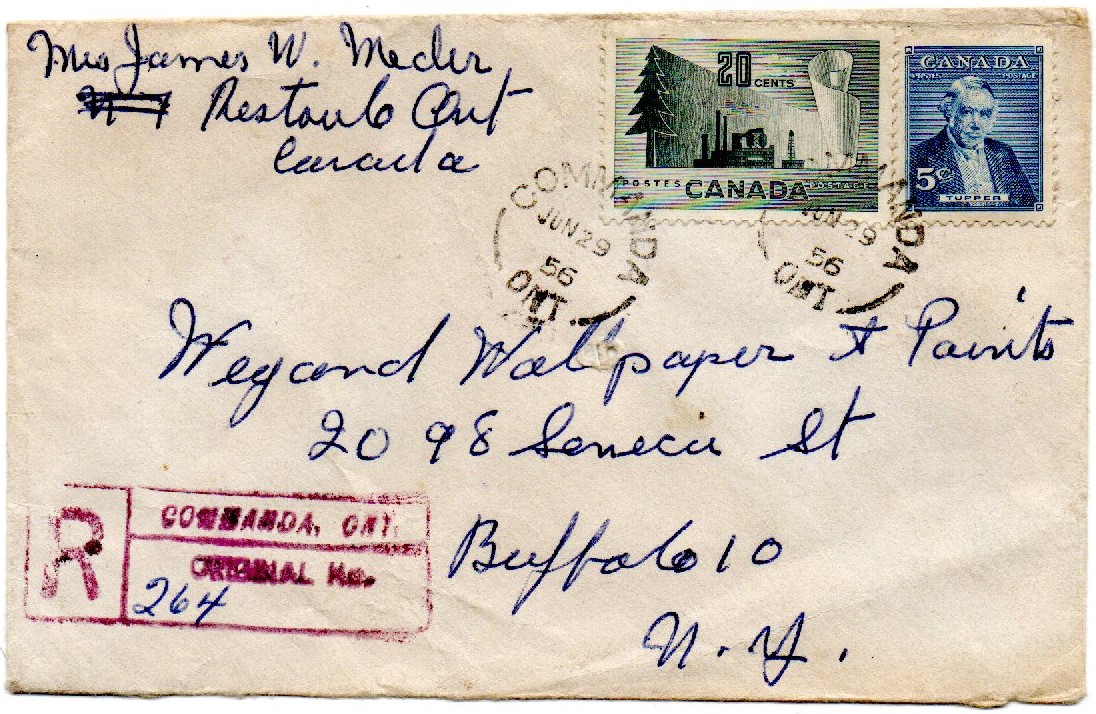 Mrs James W. Meder
Restoulo Ont
Canada
20 CENTS
POSTES CANADA POSTAGE
CANADA
POSTES POSTAGE
5¢
TUPPER
COMMANDA
JUN 29
56
ONT.
COMMANDA
JUN 29
56
ONT.
Weyand Wallpaper & Paints
2098 Seneca St
Buffalo 10
N.Y.
R
COMMANDA, ONT.
ORIGINAL No.
264